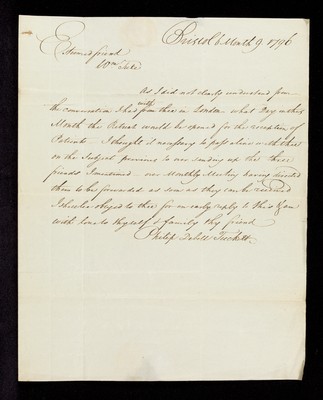 Bristol 6 Month 9. 1796
Esteemed friend
Wm Tuke
As I did not clearly understand from
with
the conversation I had from thee in London what Day in this
Month the Retreat would be opened for the reception of
Patients I thought it necessary to pass a line with thee
on the Subject previous to our sending up the three
friends I mentioned our Monthly Meeting having decided
them to be forwarded as soon as they can be received
I shall be obliged to thee for an early reply to this & am
with love to thyself & family thy friend
Philip Debell Tuckett